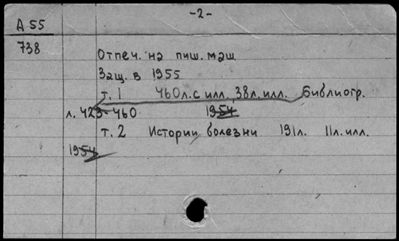 -2-
А 55
738
Отпеч. на пиш. маш
Защ. в 1955
т. 1 460л. с илл, 38л. илл. Библиогр.
л. 423-460 1954
т. 2 Истории болезни 191л. 11л. илл.
1954